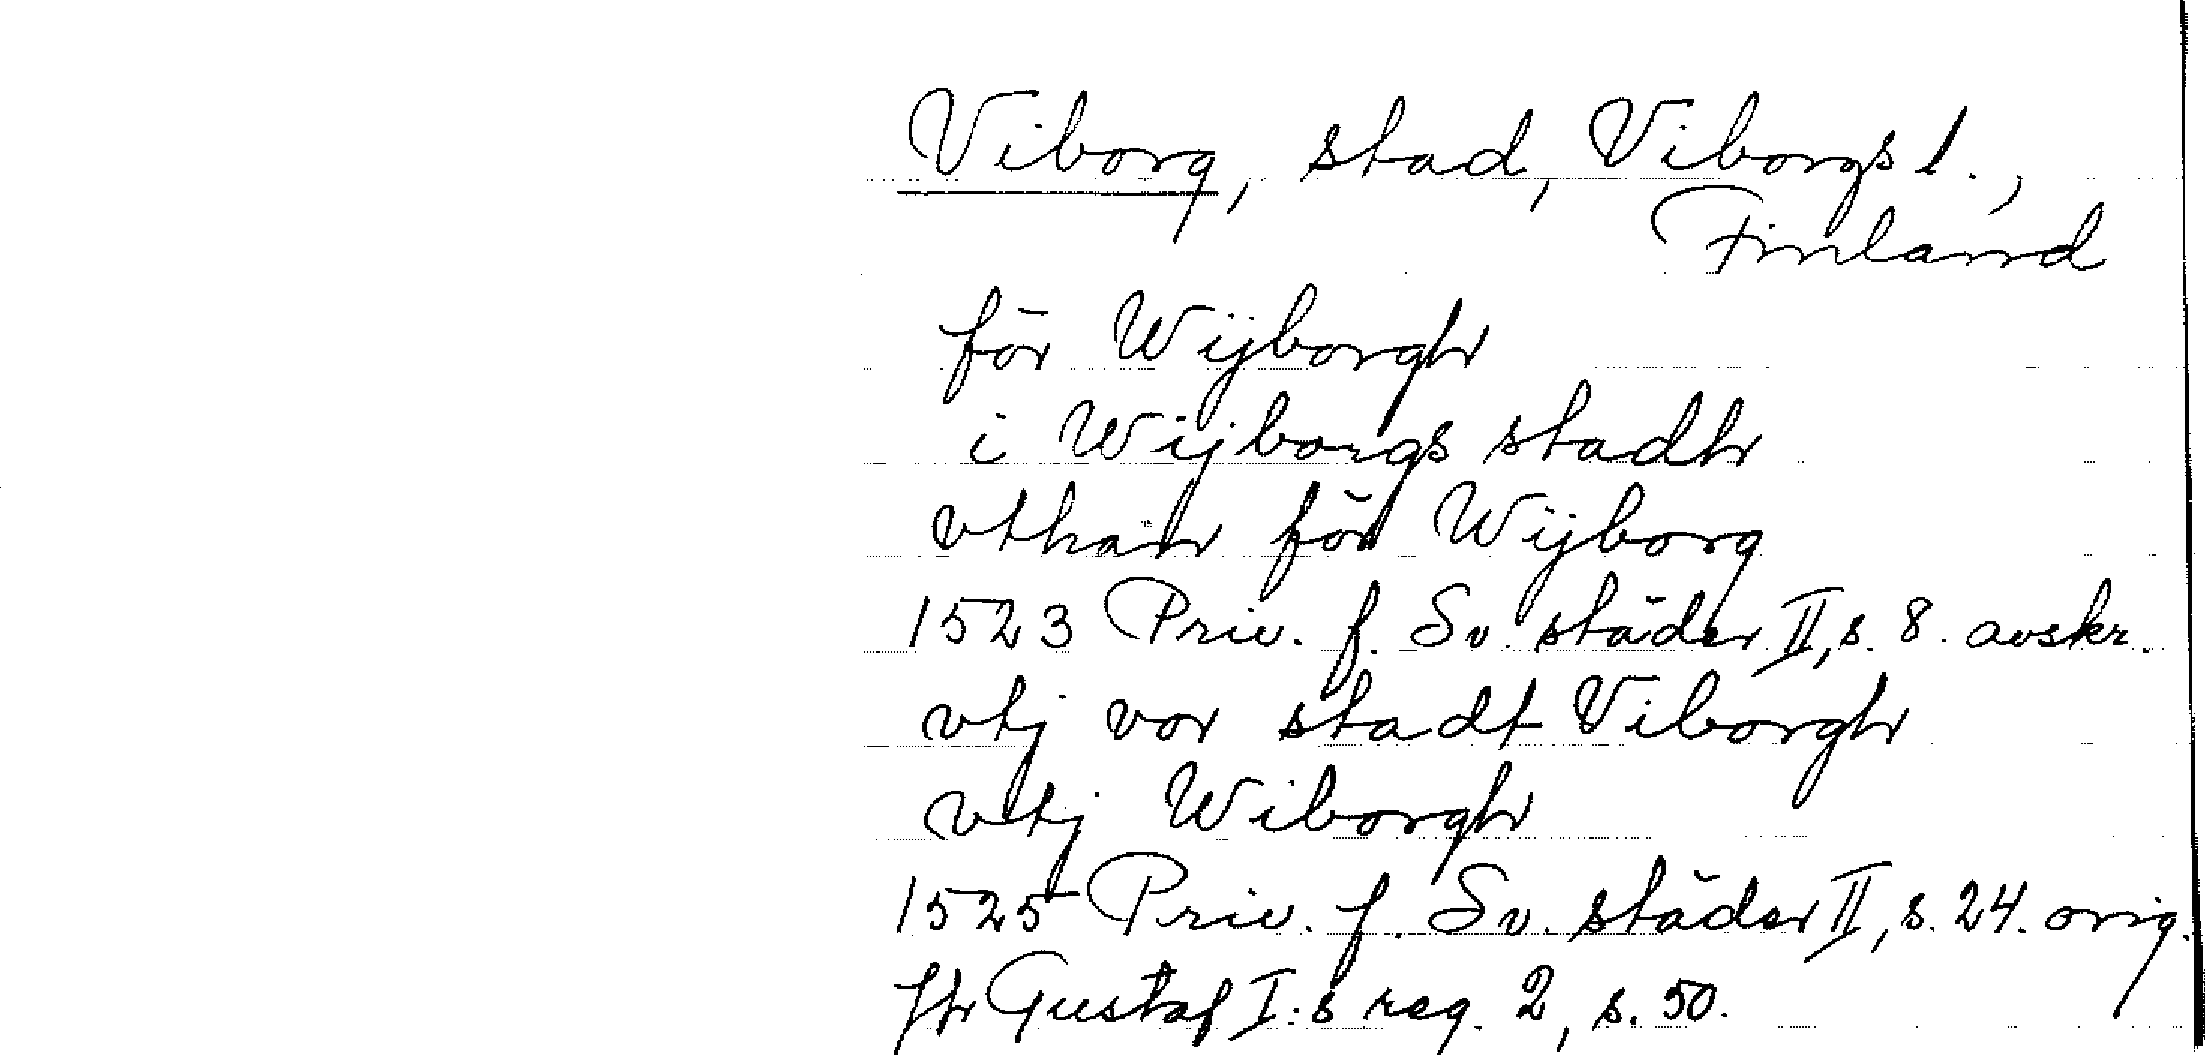 Viborg, stad, Viborgs l.,
Finland
för Wijborgh
i Wijborgs stadh
vthan för Wijborg
1523 Priv. f. Sv. städer II, s. 8. avskr.
vtj vor stadt Viborgh
vtj Wiborgh
1525 Priv. f. Sv. städer II, s. 24. orig.
Jfr Gustaf I:s reg. 2, s. 50.